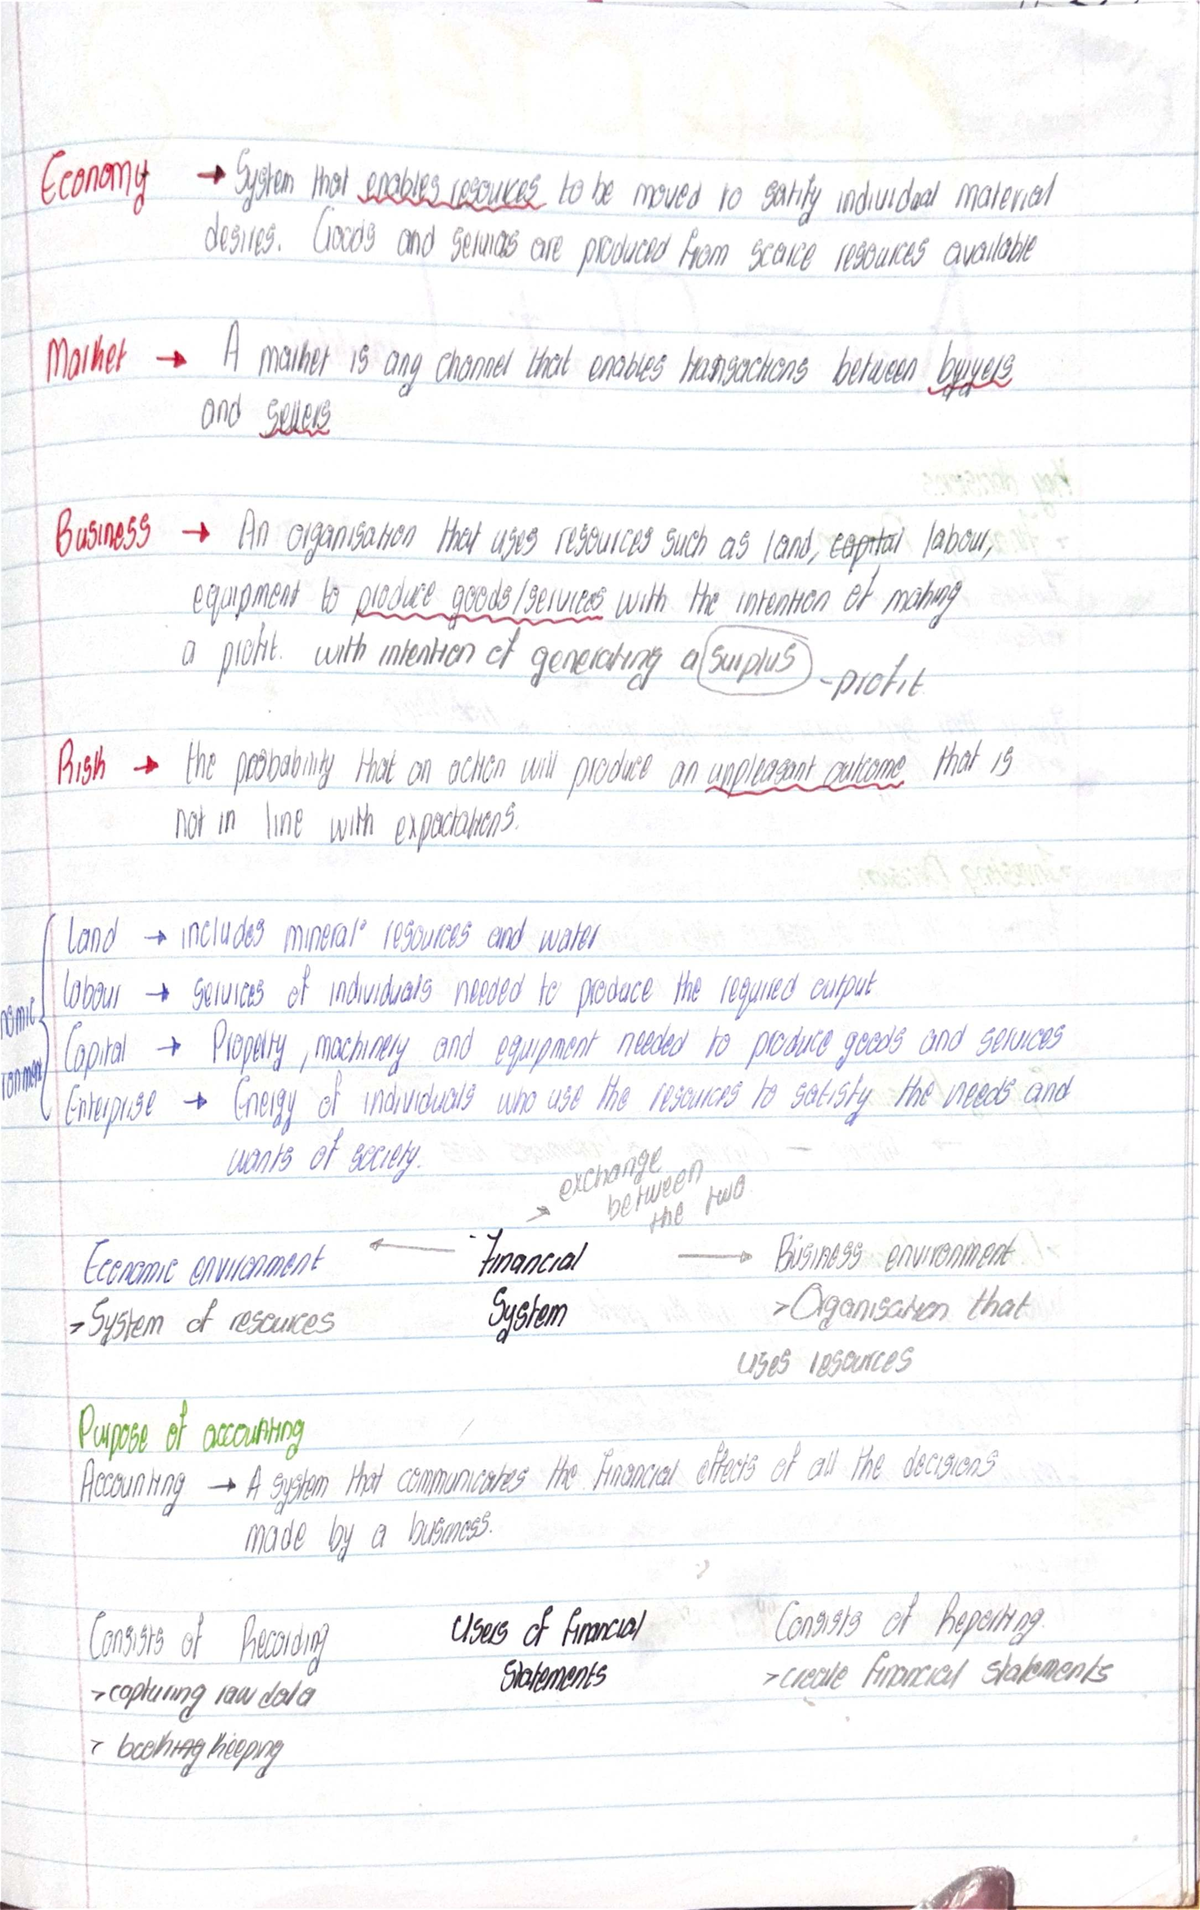 Economy → System that enables resources to be moved to satify individual material
desires. Goods and services are produced from scarce resources available
Market → A market is any channel that enables transactions between buyers
and sellers
Business → An organisation that uses resources such as land, capital labour,
equipment to produce goods/services with the intention of making
a profit. with intention of generating a surplus - profit
Risk → the probability that an action will produce an unpleasant outcome that is
not in line with expectations.
Land → includes mineral resources and water
Labour → services of individuals needed to produce the required output
Capital → Property, machinery and equipment needed to produce goods and services
Enterprise → Energy of individuals who use the resources to satisfy the needs and
wants of society.
nomic
ronment
exchange
between
the two
Economic environment ← Financial → Business environment
> System of resources System > Organisation that
uses resources
Purpose of accounting
Accounting → A system that communicates the financial effects of all the decisions
made by a business.
Consists of Recording Users of financial Consists of Reporting
> capturing raw data statements > create financial statements
> booking keeping